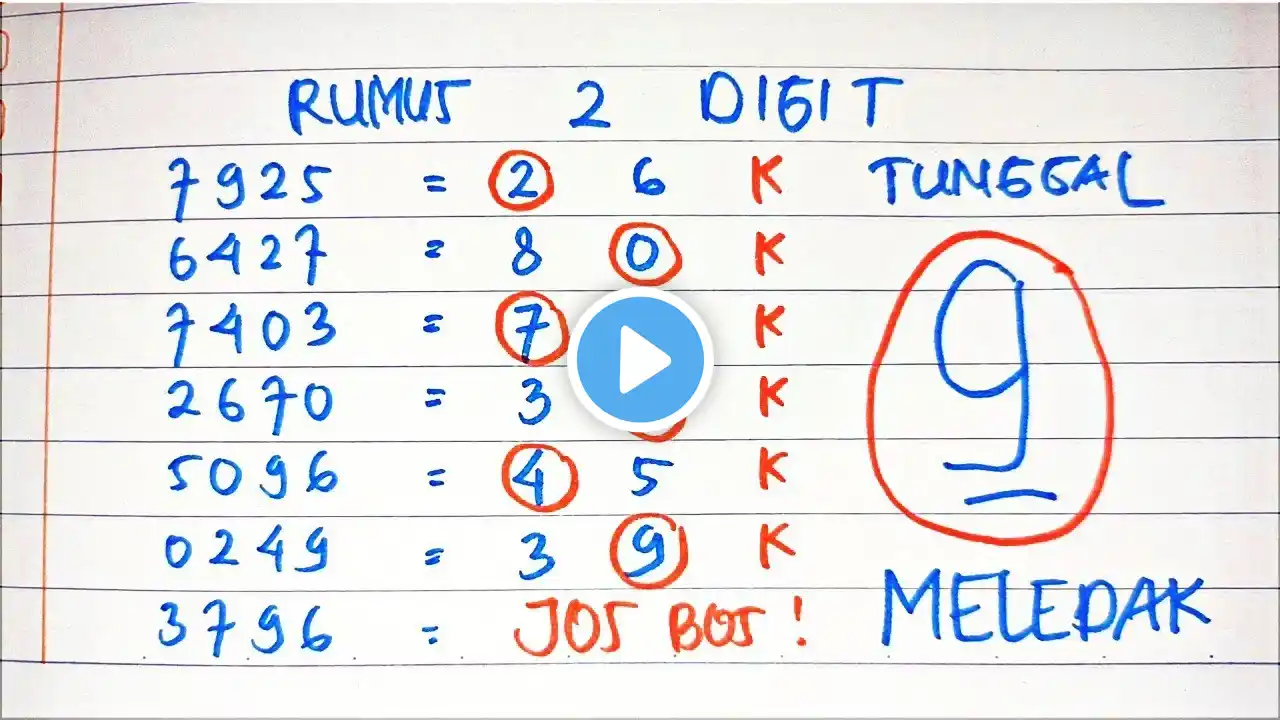 RUMUS 2 DIGIT
7925 = 2 6 K TUNGGAL
6427 = 8 0 K
7403 = 7 K
2670 = 3 K
5096 = 4 5 K
0249 = 3 9 K
9
3796 = JOS BOS !
MELEDAK